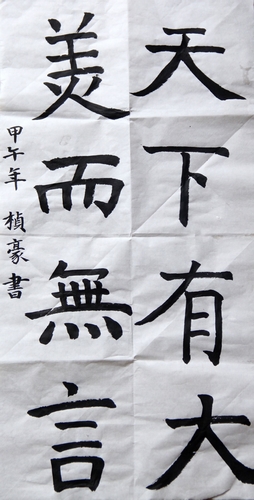 天下有大
羙而無言
甲午年 楨豪書